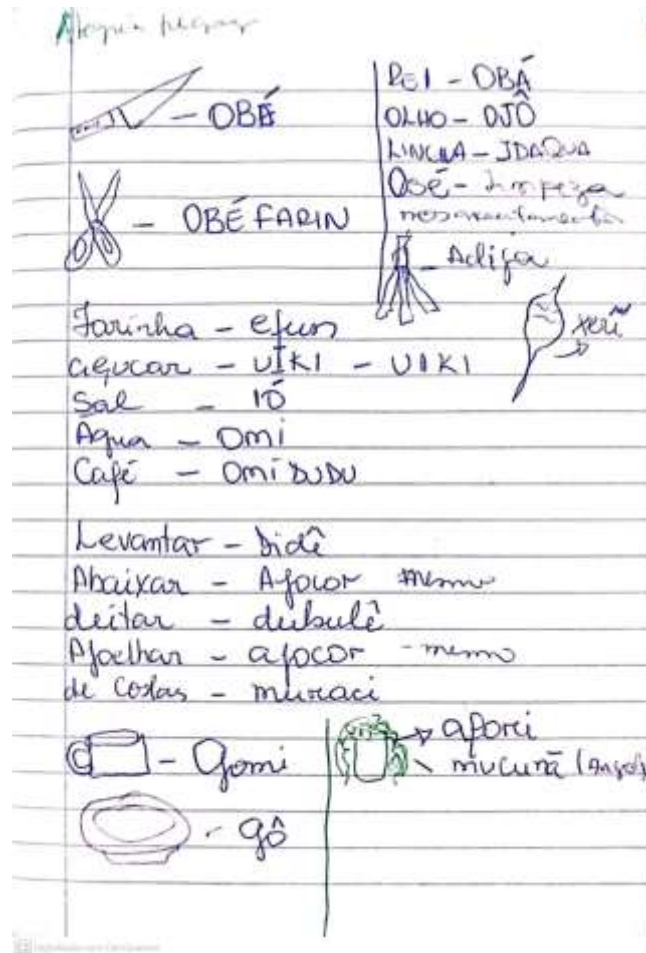 - OBÉ
- OBÉ FARIN
REI - OBÁ
OLHO - OJÔ
LINGUA - IDAQUA
Osé - Limpeza
xerê
Farinha - efun
açucar - UIKI - UIKI
Sal - IÓ
Agua - Omi
Café - Omi DUDU
Levantar - Didê
Abaixar - Ajocor mesmo
deitar - dubulê
Ajoelhar - ajocor - mesmo
de Costas - muraci
- Gomi
- gô
mucunã (Angola